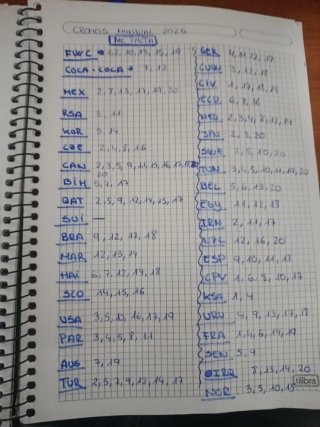 CROMOS MUNDIAL 2026
ME FALTA
FWC → 1, 2, 10, 13, 15, 19
COCA-COLA → 7, 12
MEX 2, 7, 13, 17, 19, 20
RSA 3, 11
KOR 5, 14
CZE 2, 4, 8, 16
CAN 2, 3, 5, 9, 11, 15, 16, 17, 20
BIH 5, 7, 17
QAT 2, 5, 9, 12, 14, 15, 17
SUI —
BRA 9, 12, 17, 18
MAR 12, 13, 14
HAI 6, 7, 12, 14, 18
SCO 14, 15, 16
USA 3, 5, 10, 16, 17, 19
PAR 3, 4, 5, 8, 11
AUS 7, 19
TUR 2, 5, 7, 9, 12, 14, 17
GER 4, 11, 12, 17
CUW 3, 12, 18
CIV 1, 17, 18, 19
ECU 6, 8, 16
NED 2, 3, 4, 8, 12, 14
JPN 2, 3, 20
SWE 2, 5, 10, 20
TUN 3, 4, 5, 10, 11, 19, 20
BEL 5, 6, 13, 20
EGY 11, 12, 18
IRN 2, 11, 17
NZL 12, 16, 20
ESP 9, 10, 11, 13
CPV 1, 6, 8, 10, 17
KSA 1, 4
URU 4, 9, 13, 17, 18
FRA 1, 4, 6, 14, 19
SEN 5, 9
IRQ 8, 13, 14, 20
NOR 3, 5, 10, 15
tilibra